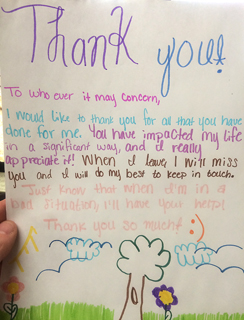 Thank you!
To who ever it may concern,
I would like to thank you for all that you have
done for me. You have impacted my life
in a significant way, and I really
appreciate it! When I leave, I will miss
you and I will do my best to keep in touch.
Just know that when I'm in a
bad situation, I'll have your help!
Thank you so much! :)